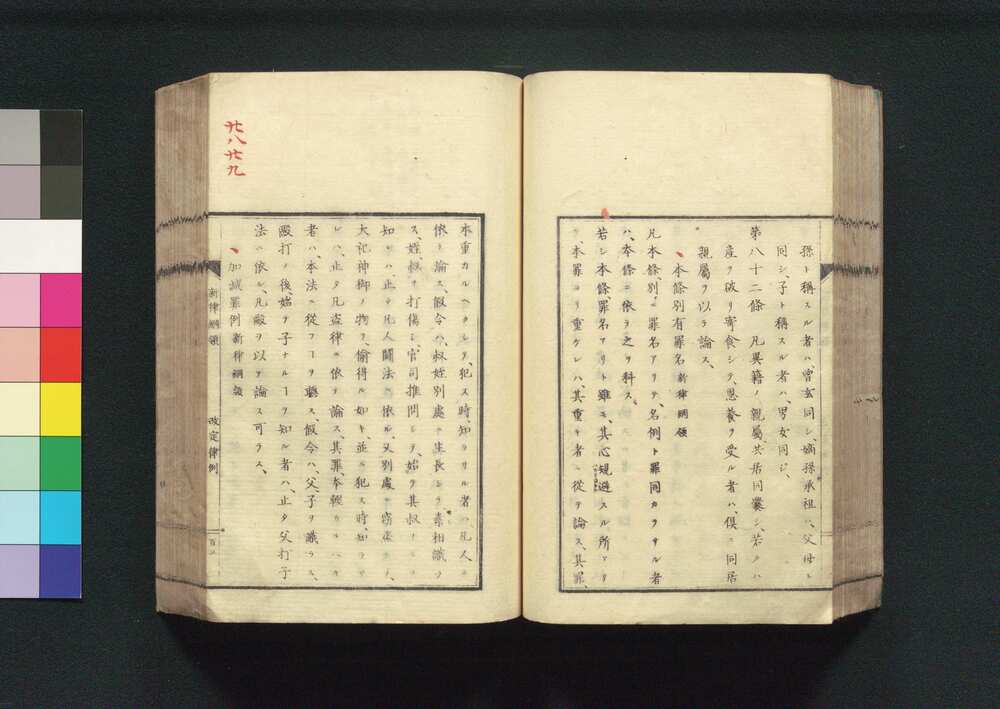 孫ト稱スル者ハ、曾玄同シ、嫡孫承祖ハ、父母ト
同シ、子ト稱スル者ハ、男女同シ、
第八十二條　凡異籍ノ親屬、共居同爨シ、若クハ
産ヲ破リ寄食シテ、恩養ヲ受ル者ハ、倶ニ同居
親屬ヲ以テ論ス、
本條別有罪名 新律綱領
凡本條、別ニ罪名アリテ、名例ト罪同カラサル者
ハ、本條ニ依テ之ヲ科ス、
若シ本條、罪名アリト雖モ、其心規避スル所アリ
テ、本罪ヨリ重ケレハ、其重キ者ニ從テ論ス、其罪、
本重カルヘクシテ、犯ス時、知ラサル者ハ、凡人ニ
依テ論ス、假令ハ、叔姪別處ニ生長シテ、素相識ラ
ス、姪、叔ヲ打傷シ、官司推問シテ、始テ其叔ナルヲ
知レハ、止タ凡人鬪法ニ依ル、又別處ニ竊盗シテ、
大祀神御ノ物ヲ、偷得ル如キ、並ニ犯ス時、知ラサ
レハ、止タ凡盗律ニ依テ論ス、其罪本輕カルヘキ
者ハ、本法ニ從フヿヲ聽ス、假令ハ、父子ヲ識ラス、
毆打ノ後、始テ子ナルヿヲ知ル者ハ、止タ父打子
法ニ依ル、凡毆ヲ以テ論ス可ラス、
加減罪例 新律綱領
新律綱領
改定律例
廿八廿九